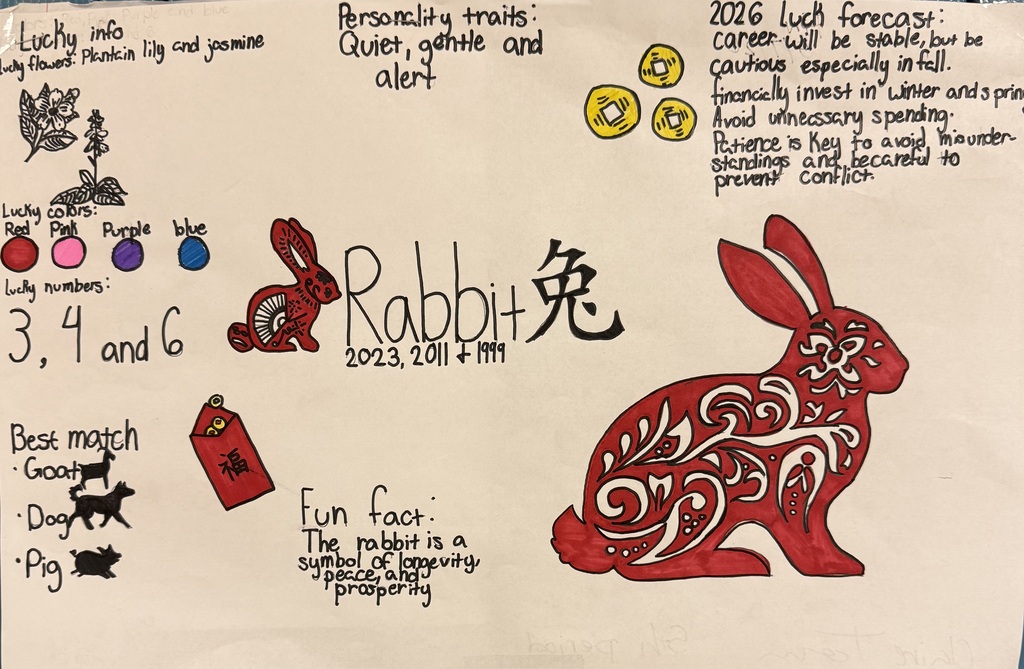 Lucky info
Lucky flowers: Plantain lily and jasmine
Lucky colors:
Red Pink Purple blue
Lucky numbers:
3, 4 and 6
Best match
· Goat
· Dog
· Pig
Personality traits:
Quiet, gentle and
alert
Rabbit 兔
2023, 2011 + 1999
福
Fun fact:
The rabbit is a
symbol of longevity,
peace, and
prosperity
2026 luck forecast:
career will be stable, but be
cautious especially in fall.
financially invest in winter and sprin
Avoid unnecssary spending.
Patience is key to avoid misunder-
standings and becareful to
prevent conflict.
5th period